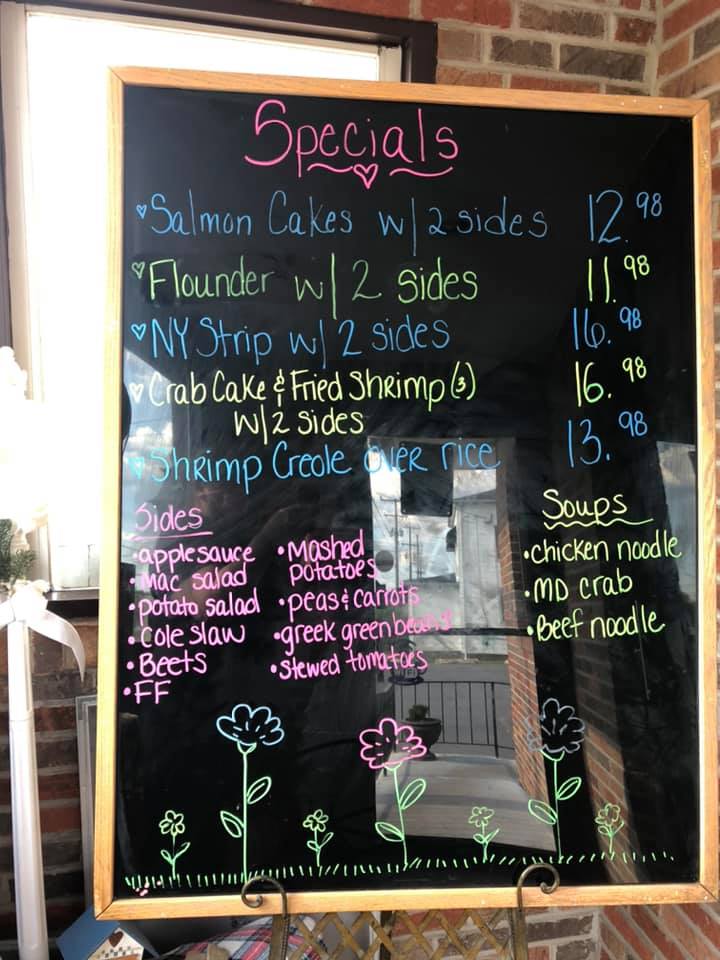 Specials
Salmon Cakes w/ 2 sides 12.98
Flounder w/ 2 sides 11.98
NY Strip w/ 2 sides 16.98
Crab Cake & Fried Shrimp (3) 16.98
w/ 2 sides
Shrimp Creole over rice 13.98
Sides
• applesauce
• Mac salad
• potato salad
• Cole slaw
• Beets
• FF
• Mashed
potatoes
• peas & carrots
• greek green beans
• stewed tomatoes
Soups
• chicken noodle
• MD crab
• Beef noodle